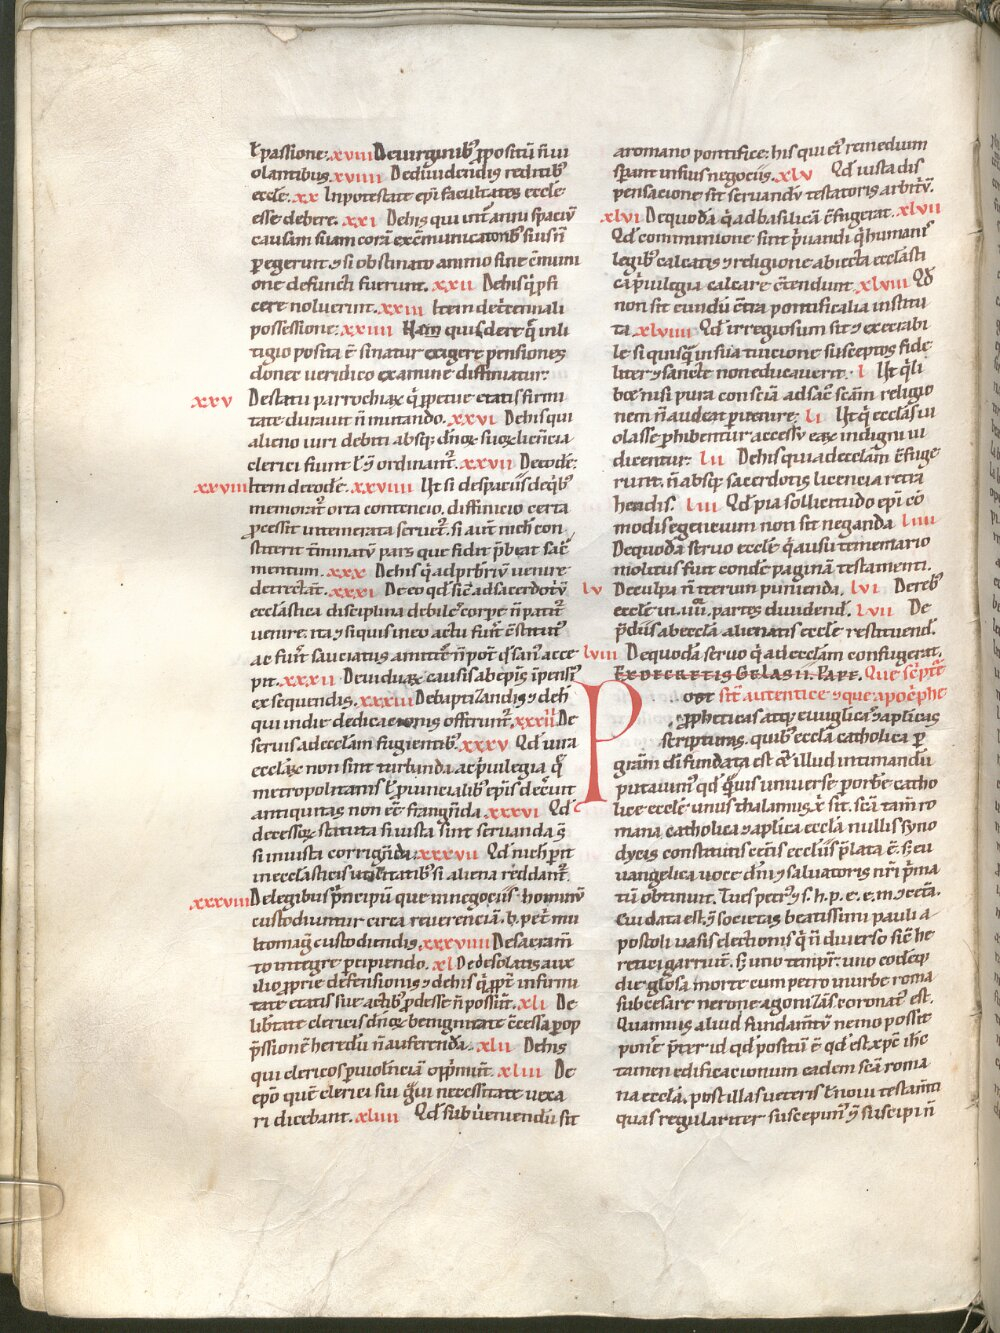 ł passione. xviii De virginib; ꝓpositū n̄ vi
olantibus. xviiii De diuidendis reditib;
eccłe. xx In potestate ep̄i facultates eccłe
esse debere. xxi De his qui int̄ anni spaciū
causam suam corā excōmunicatorib; suis n̄
ꝑegerunt ⁊ si obstinato animo sine cōmuni
one defuncti fuerunt. xxii De his q̇ ꝓfi
cere noluerint. xxiii Item de t̄cennali
possessione. xxiiii
tigio posita ē sinatur exigere pensiones
donec veridico examine diffiniatur.
xxv De statu parrochiaꝝ q̄ ꝑpetue etatis firmi
tate durauit n̄ mutando. xxvi De his qui
alieno iuri debiti absq; dn̄oꝝ suoꝝ licencia
clerici fiunt ł ⁊ ordinant̄. xxvii De eodē.
xxviii Item de eodē. xxviiii Ut si de spaciis de q̇b;
memorat̄ orta contencio. diffinicio certa
ꝓcessit intemerata seruet̄. si aut̄ nichł con
stiterit t̄minatū pars que fidit p̄beat sac̄
mentum. xxx De his q̇ ad p̄rbr̄iū venire
detrectāt. xxxi De eo qđ sic̄ ad sacerdotiū
eccłastica disciplina debile corpe n̄ patit̄
venire. ita ⁊ si quis in eo actu fūit c̄stitut̄
ac fūit sauciatus amitte n̄ pot̄ qđ san̄ acce
pit. xxxii De viduaꝝ causis ab ep̄is ī pensī
exsequendis. xxxiii De baptizandis ⁊ de h̄
qui in die dedicacionis offerunt̄. xxxiiii De
seruis ad eccłam fugientib;. xxxv Qđ iura
eccłaꝝ non sint turbanda ac p̄uilegia q̄
metropolitanis ł ꝓuincialib; ep̄is dec̄unt
antiquitas non eē frangn̄da. xxxvi Qđ
decessoꝝ statuta si iusta sint seruanda s;
si iniusta corrign̄da. xxxvii Qđ nichł ꝓsit
in eccłasticis utilitatib; si aliena reddant̄.
xxxviii De legibus p̄ncipū que in negociis hominū
custodiuntur circa reuerenciā. b. pet̄ mu
ltomaḡ custodiendis. xxxviiii De sacram̄
to integre ꝑcipiendo. xl De desolatis aux
ilio ꝓprie defensionis ⁊ de his q̇ ꝓpt̄ infirmi
tate etatis sue actib; ꝓdesse n̄ possūt. xli De
libtate clericis dn̄oꝝ benignitate c̄cessa ꝓ op
p̄ssionē heredū n̄ auferenda. xlii De his
qui clericos ꝑ uioln̄ciā opp̄mūt. xliii De
ep̄o quē clerici sui
ri dicebant. xliiii Qđ sub iuuenidū sit
a romano pontifice. his qui ei remedium
spant in suis negociis. xlv Qđ iusta dis
pensacione sit seruandū testatoris arbitriū.
xlvi De quodā q̇ ad basilicā c̄fugerat. xlvii
Qđ communione sint p̄uandi q̇ humanis
legib; calcatis ⁊ religione abiecta eccłasti
ca p̄uilegia calcare c̄tendunt. xlviii Qđ
non sit eundū c̄tra pontificalia institu
ta. xlviiii Qđ irregiosum sit ⁊ execrabi
le si quisq̄ in sua tuicione susceptos fide
liter ⁊ sancte non educauerit. l Ut q̇ li
bet nisi pura conscīa ad sac̄ scām religio
nem n̄ audeat ꝑuenire. li Ut q̇ eccłas ui
olasse ꝓhibentur accessū eaꝝ indigni iu
dicentur. lii De his qui ad eccłam c̄fuge
runt. n̄ absq; sacerdotis licencia retra
hendis. liii Qđ pia sollicitudo ep̄i cō
modis egencium non sit neganda. liiii
De quodā seruo eccłe q̇ ausu temerario
molitus fuit condē paginā testamenti.
lv De culpa n̄ iterum punienda. lvi De reb;
eccłe in .iiii. partes diuidend̄. lvii De
p̄diis ab eccłā alienatis eccłe restituend̄.
lviii De quodā seruo q̇ ad eccłam confugerat.
EX DECRETIS GELASII. PAPE. Que sc̄pte
Post sīt autentice ⁊ que apoc̄phe
ꝓpheticas atq; euuglicas ⁊ aplicas
scripturas. quib; eccłā catholica ꝑ
grām dī fundata est ēt illud intimandū
putauim; qđ q̄uis uniuerse ꝑ orbē catho
lice eccłe unus thalamus x̄ sit. scā tam̄ ro
mana catholica ⁊ aplica eccłā nullis syno
dycis constitutis cet̄is eccłiis p̄lata ē. s; eu
uangelica uoce dn̄i ⁊ saluatoris nr̄i p̄ma
tū obtinuit. Tu es petr̄ ⁊ s. h. p. e. e. m. ⁊ cet̄a.
Cui data est ⁊ societas beatissimi pauli a
postoli uasis electionis q̇ n̄ diuerso sic̄ he
retici garriūt. s; uno tempr̄. uno eodēq;
die głosa morte cum petro in urbe roma
sub cesare nerone agonizās coronat̄ est.
Quamuis aliud fundam̄tū nemo possit
pon̄e p̄ter id qđ positū ē qđ est xp̄c ihc
tamen edificacionum eadem scā roma
na eccłā. post illas ueteris ł noui testam̄ti
quas regulariter suscepim; ⁊ suscipi n̄